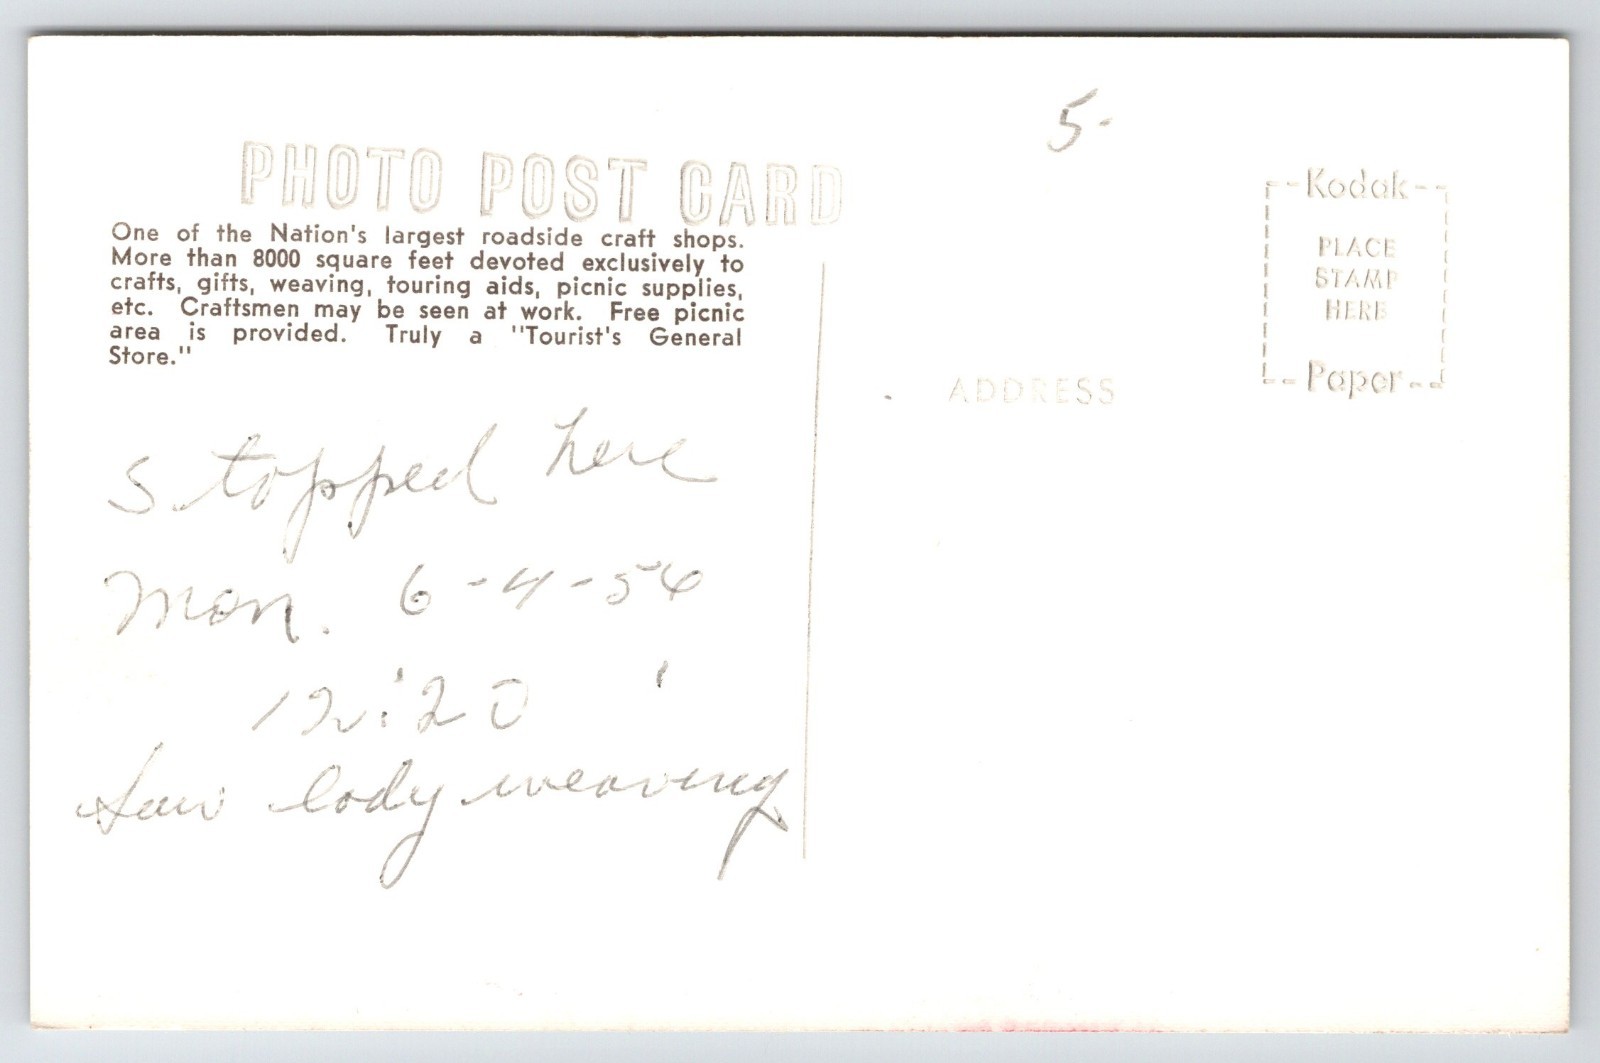 5-
PHOTO POST CARD
One of the Nation's largest roadside craft shops.
More than 8000 square feet devoted exclusively to
crafts, gifts, weaving, touring aids, picnic supplies,
etc. Craftsmen may be seen at work. Free picnic
area is provided. Truly a "Tourist's General
Store."
Stopped here
Mon. 6-4-56
12:20
Saw lady weaving
Kodak
PLACE
STAMP
HERE
Paper
ADDRESS